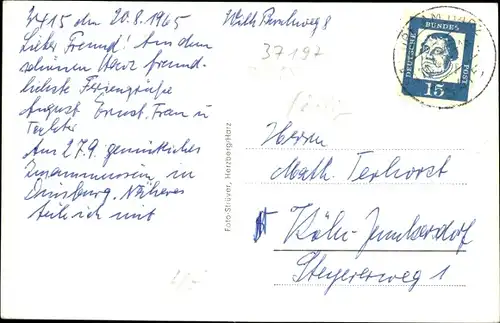 3415 den 20.8.1965
Lieber Freund! Aus dem
schönen Harz freund-
lichste Feriengrüße
August Ernst, Frau u
Tochter
Am 27.9. gemütliches
Zusammensein in
Duisburg. Näheres
teile ich mit
37197
Foto-Strüver, Herzberg/Harz
DEUTSCHE
BUNDES
POST
15
Herrn
Math. Terhorst
Köln-Junkersdorf
Steyererweg 1